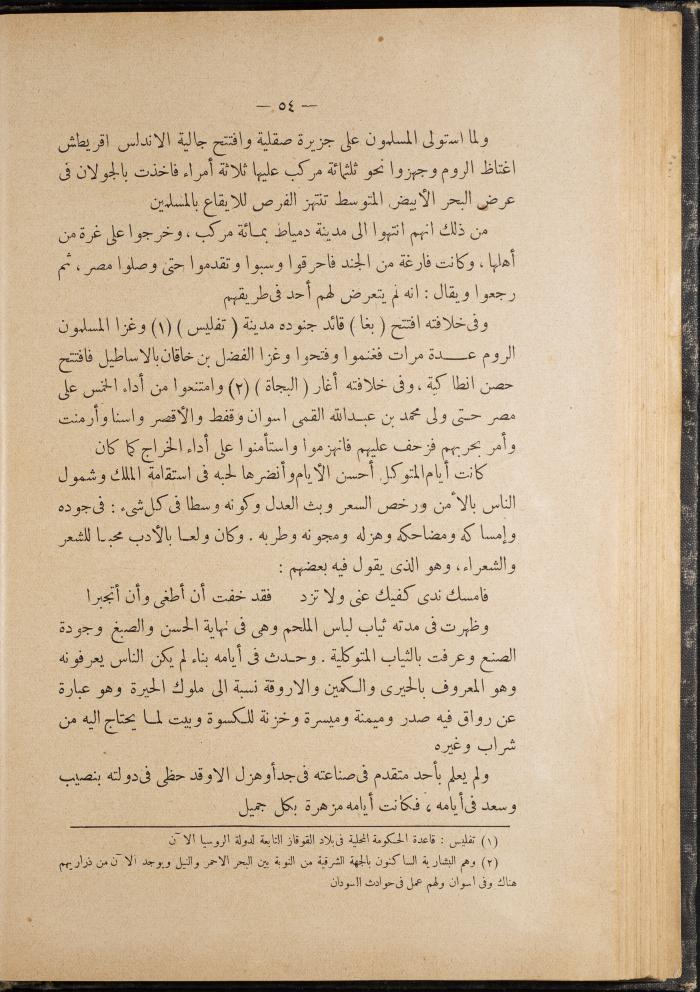 — ٥٤ —
ولما استولى المسلمون على جزيرة صقلية وافتتح جالية الاندلس اقريطش
اغتاظ الروم وجهزوا نحو ثلثمائة مركب عليها ثلاثة أمراء فاخذت بالجولان فى
عرض البحر الأبيض المتوسط تنتهز الفرص للايقاع بالمسلمين
من ذلك انهم انتهوا الى مدينة دمياط بمائة مركب ، وخرجوا على غرة من
أهلها ، وكانت فارغة من الجند فاحرقوا وسبوا وتقدموا حتى وصلوا مصر ، ثم
رجعوا ويقال : انه لم يتعرض لهم أحد فى طريقهم
وفى خلافته افتتح ( بغا ) قائد جنوده مدينة ( تفليس ) (١) وغزا المسلمون
الروم عدة مرات فغنموا وفتحوا وغزا الفضل بن خاقان بالاساطيل فافتتح
حصن انطاكية ، وفى خلافته أغار ( البجاة ) (٢) وامتنعوا من أداء الخمس على
مصر حتى ولى محمد بن عبدالله القمى اسوان وقفط والأقصر واسنا وأرمنت
وأمر بحربهم فزحف عليهم فانهزموا واستأمنوا على أداء الخراج كما كان
كانت أيام المتوكل أحسن الأيام وأنضرها لحبه فى استقامة الملك وشمول
الناس بالأمن ورخص السعر وبث العدل وكونه وسطا فى كل شىء : فى جوده
وإمساكه ومضاحكه وهزله ومجونه وطربه . وكان ولعا بالأدب محبا للشعر
والشعراء ، وهو الذى يقول فيه بعضهم :
فامسك ندى كفيك عنى ولا تزد فقد خفت أن أطغى وأن أتجبرا
وظهرت فى مدته ثياب لباس الملحم وهى فى نهاية الحسن والصبغ وجودة
الصنع وعرفت بالثياب المتوكلية . وحدث فى أيامه بناء لم يكن الناس يعرفونه
وهو المعروف بالحيرى والكمين والاروقة نسبة الى ملوك الحيرة وهو عبارة
عن رواق فيه صدر وميمنة وميسرة وخزنة للكسوة وبيت لما يحتاج اليه من
شراب وغيره
ولم يعلم بأحد متقدم فى صناعته فى جد أو هزل الا وقد حظى فى دولته بنصيب
وسعد فى أيامه ، فكانت أيامه مزهرة بكل جميل
(١) تفليس : قاعدة الحكومة المحلية فى بلاد القوقاز التابعة لدولة الروسيا الآن
(٢) وهم البشارية الساكنون بالجهة الشرقية من النوبة بين البحر الاحمر والنيل ويوجد الآن من ذراريهم
هناك وفى اسوان ولهم عمل فى حوادث السودان